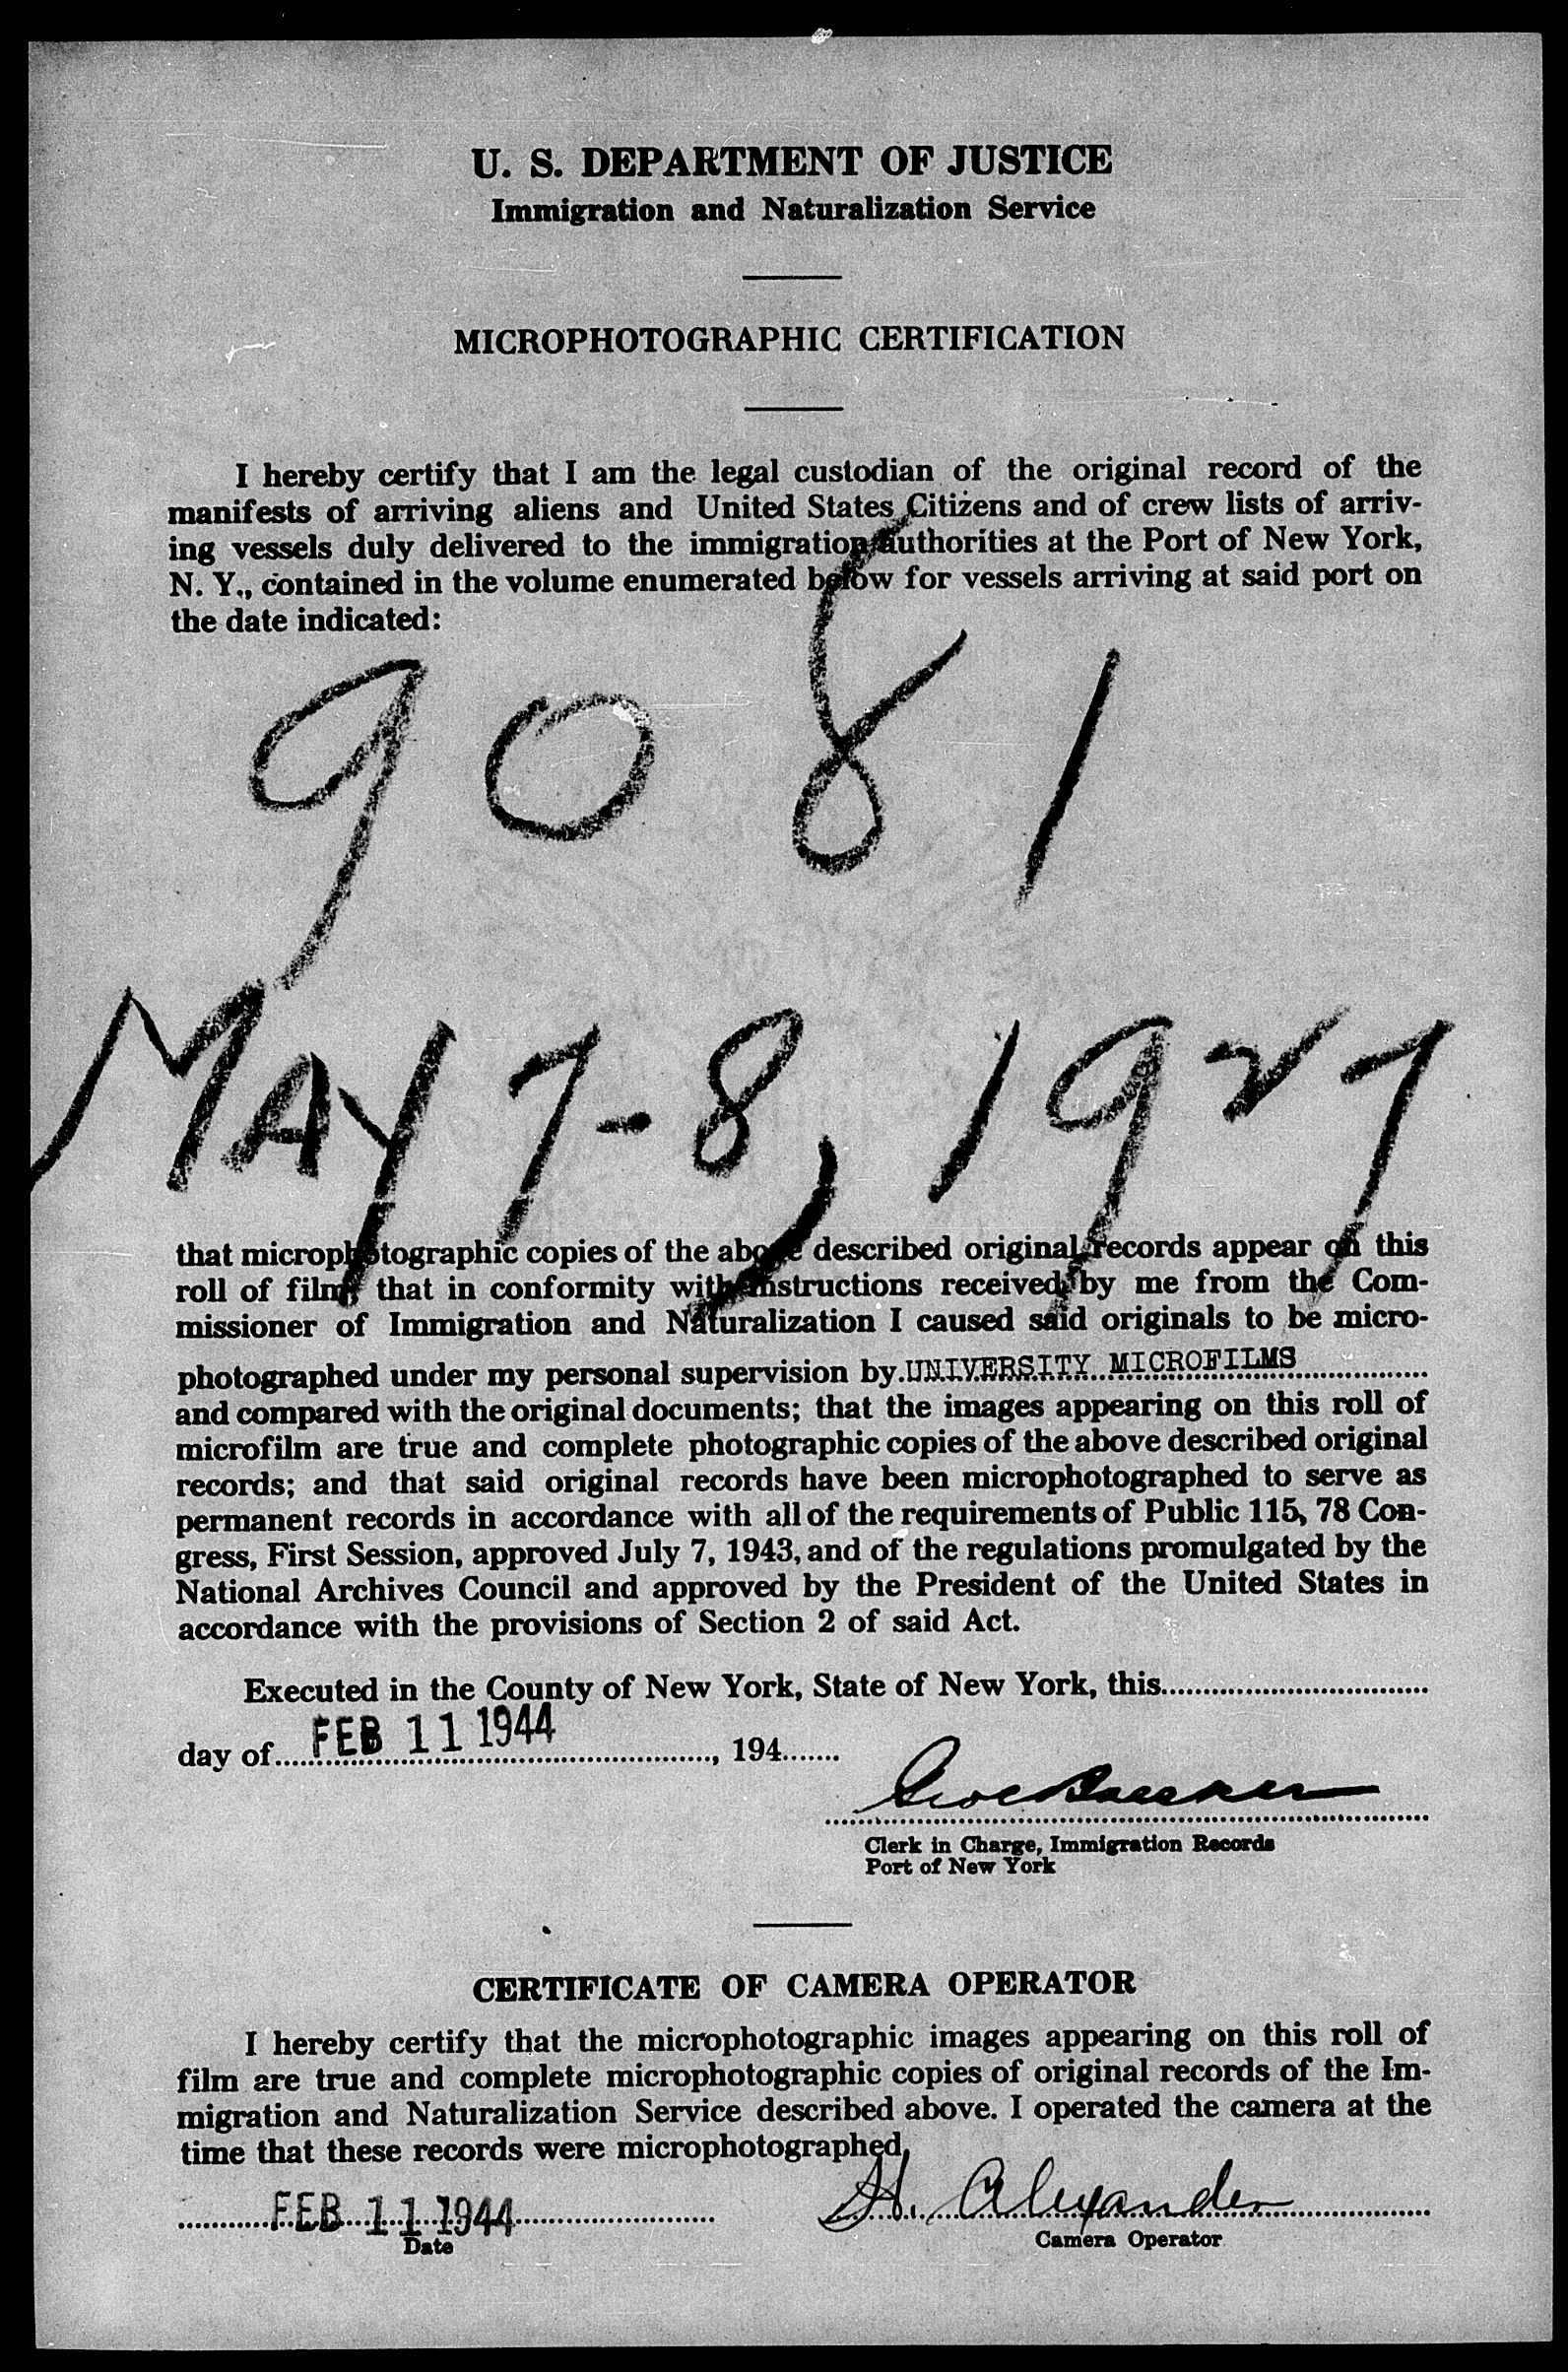 U. S. DEPARTMENT OF JUSTICE
Immigration and Naturalization Service
MICROPHOTOGRAPHIC CERTIFICATION
I hereby certify that I am the legal custodian of the original record of the
manifests of arriving aliens and United States Citizens and of crew lists of arriv-
ing vessels duly delivered to the immigration authorities at the Port of New York,
N. Y., contained in the volume enumerated below for vessels arriving at said port on
the date indicated:
9081
MAY 7-8, 1927
that microphotographic copies of the above described original records appear on this
roll of film; that in conformity with instructions received by me from the Com-
missioner of Immigration and Naturalization I caused said originals to be micro-
photographed under my personal supervision by UNIVERSITY MICROFILMS
and compared with the original documents; that the images appearing on this roll of
microfilm are true and complete photographic copies of the above described original
records; and that said original records have been microphotographed to serve as
permanent records in accordance with all of the requirements of Public 115, 78 Con-
gress, First Session, approved July 7, 1943, and of the regulations promulgated by the
National Archives Council and approved by the President of the United States in
accordance with the provisions of Section 2 of said Act.
Executed in the County of New York, State of New York, this
day of FEB 11 1944, 194
Clerk in Charge, Immigration Records
Port of New York
CERTIFICATE OF CAMERA OPERATOR
I hereby certify that the microphotographic images appearing on this roll of
film are true and complete microphotographic copies of original records of the Im-
migration and Naturalization Service described above. I operated the camera at the
time that these records were microphotographed.
FEB 11 1944 H. Alexander
Date Camera Operator